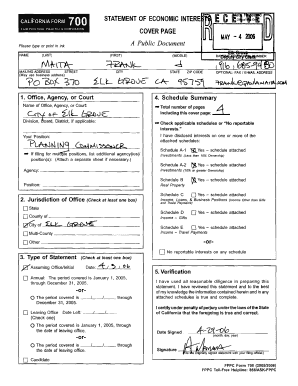 CALIFORNIA FORM 700
FAIR POLITICAL PRACTICES COMMISSION
STATEMENT OF ECONOMIC INTERESTS
COVER PAGE
A Public Document
Please type or print in ink
RECEIVE
MAY - 4 2006
NAME (LAST) (FIRST) (MIDDLE)
MAITA FRANK J
MAILING ADDRESS STREET CITY STATE ZIP CODE OPTIONAL: FAX / E-MAIL ADDRESS
PO BOX 370 ELK GROVE CA 95759
1. Office, Agency, or Court
Name of Office, Agency, or Court:
CITY OF ELK GROVE
Division, Board, District, if applicable:
Your Position:
PLANNING COMMISSIONER
If filing for multiple positions, list additional agency(ies)/
position(s): (Attach a separate sheet if necessary.)
Agency:
Position:
2. Jurisdiction of Office (Check at least one box)
State
County of
City of ELK GROVE
Multi-County
Other
3. Type of Statement (Check at least one box)
Assuming Office/Initial Date: 4.3.06
Annual: The period covered is January 1, 2005,
through December 31, 2005.
-or-
The period covered is , through
December 31, 2005.
Leaving Office Date Left:
(Check one)
The period covered is January 1, 2005, through
the date of leaving office.
-or-
The period covered is , through
the date of leaving office.
Candidate
4. Schedule Summary
Total number of pages
including this cover page: 4
Check applicable schedules or "No reportable
interests."
I have disclosed interests on one or more of the
attached schedules:
Schedule A-1 Yes – schedule attached
Investments (Less than 10% Ownership)
Schedule A-2 Yes – schedule attached
Investments (10% or greater Ownership)
Schedule B Yes – schedule attached
Real Property
Schedule C Yes – schedule attached
Income, Loans, & Business Positions (Income Other than Gifts
and Travel Payments)
Schedule D Yes – schedule attached
Income – Gifts
Schedule E Yes – schedule attached
Income – Travel Payments
-or-
No reportable interests on any schedule
5. Verification
I have used all reasonable diligence in preparing this
statement. I have reviewed this statement and to the best
of my knowledge the information contained herein and in any
attached schedules is true and complete.
I certify under penalty of perjury under the laws of the State
of California that the foregoing is true and correct.
Date Signed 4-29-06
(month, day, year)
Signature
FPPC Form 700 (2005/2006)
FPPC Toll-Free Helpline: 866/ASK-FPPC